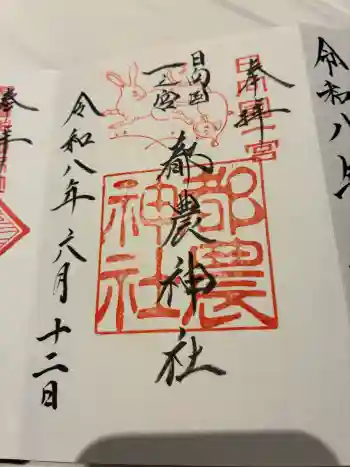 令和八年
奉拝
日向国
一之宮
都農神社
都農
神社
令和八年六月十二日
奉拝